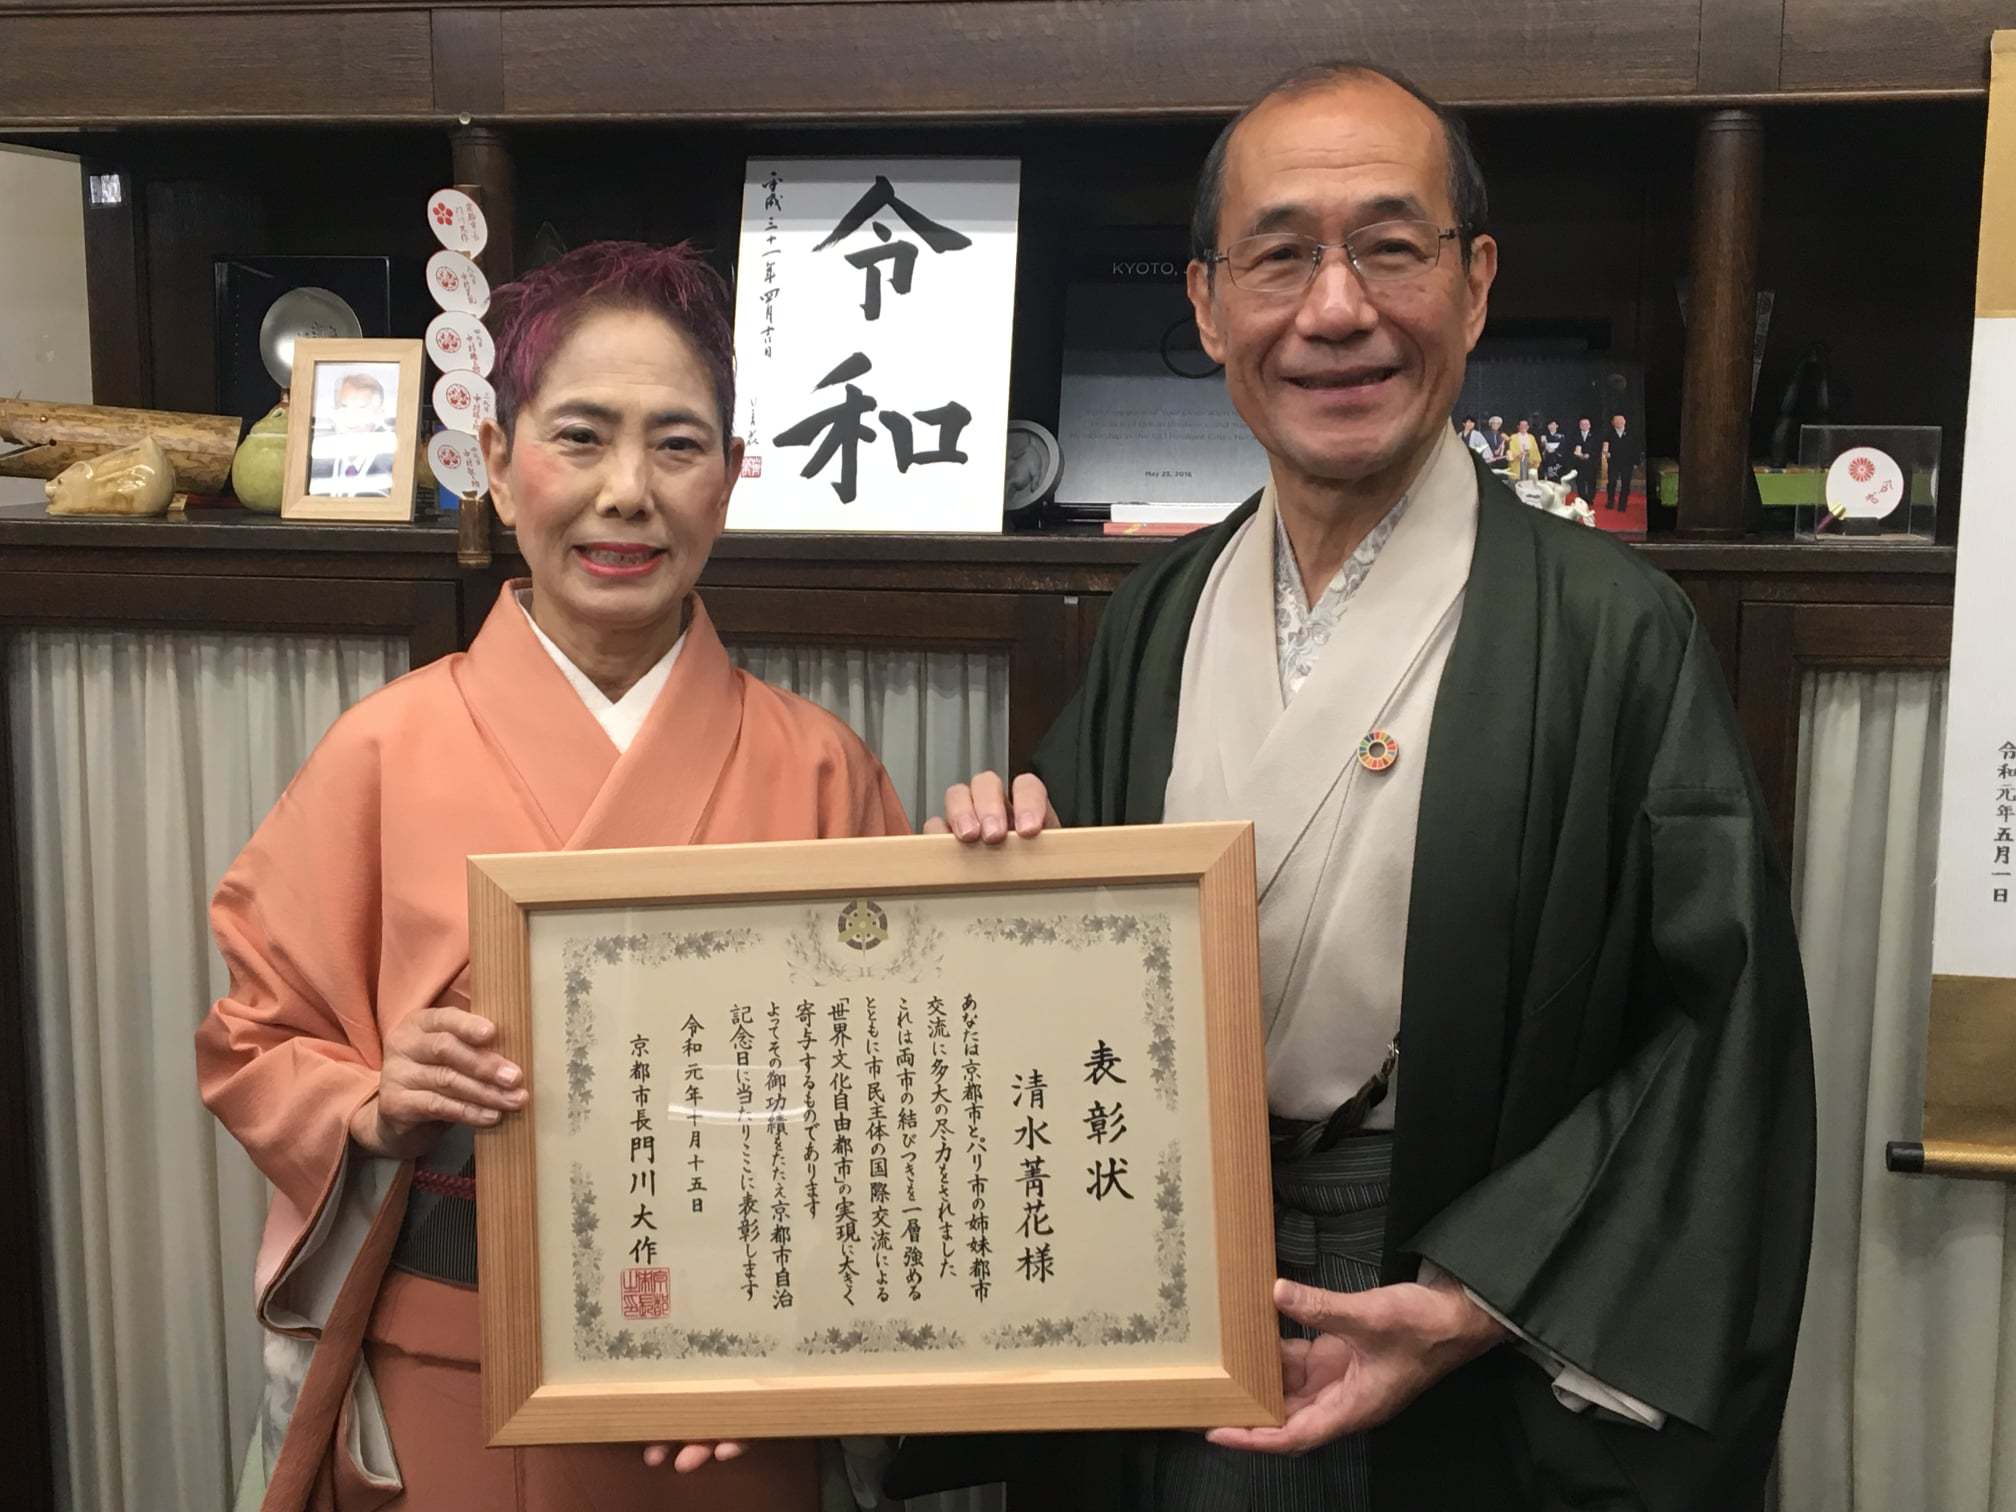 令和
平成三十一年四月廿六日
KYOTO, J
May 25, 2016
令和
令和元年五月一日
表彰状
清水菁花様
あなたは京都市とパリ市の姉妹都市
交流に多大の尽力をされました
これは両市の結びつきを一層強める
とともに市民主体の国際交流による
「世界文化自由都市」の実現に大きく
寄与するものであります
よってその御功績をたたえ京都市自治
記念日に当たりここに表彰します
令和元年十月十五日
京都市長門川大作
京都市長之印